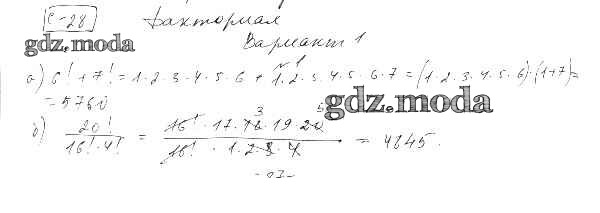 С-28 Факториал
gdz.moda
Вариант 1
№1
а) 6! + 7! = 1·2·3·4·5·6 + 1·2·3·4·5·6·7 = (1·2·3·4·5·6)·(1+7)=
= 5760
gdz.moda
б) 20! / 16!·4! = 16!·17·18·19·20 / 16!·1·2·3·4 = 4845.
3 5